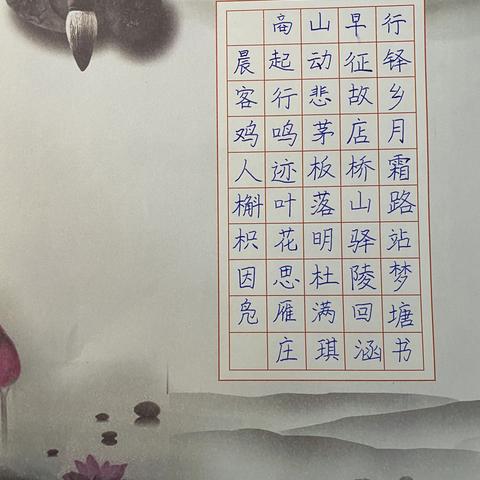 商山早行
晨起动征铎
客行悲故乡
鸡鸣茅店月
人迹板桥霜
槲叶落山路
枳花明驿站
因思杜陵梦
凫雁满回塘
庄琪涵书